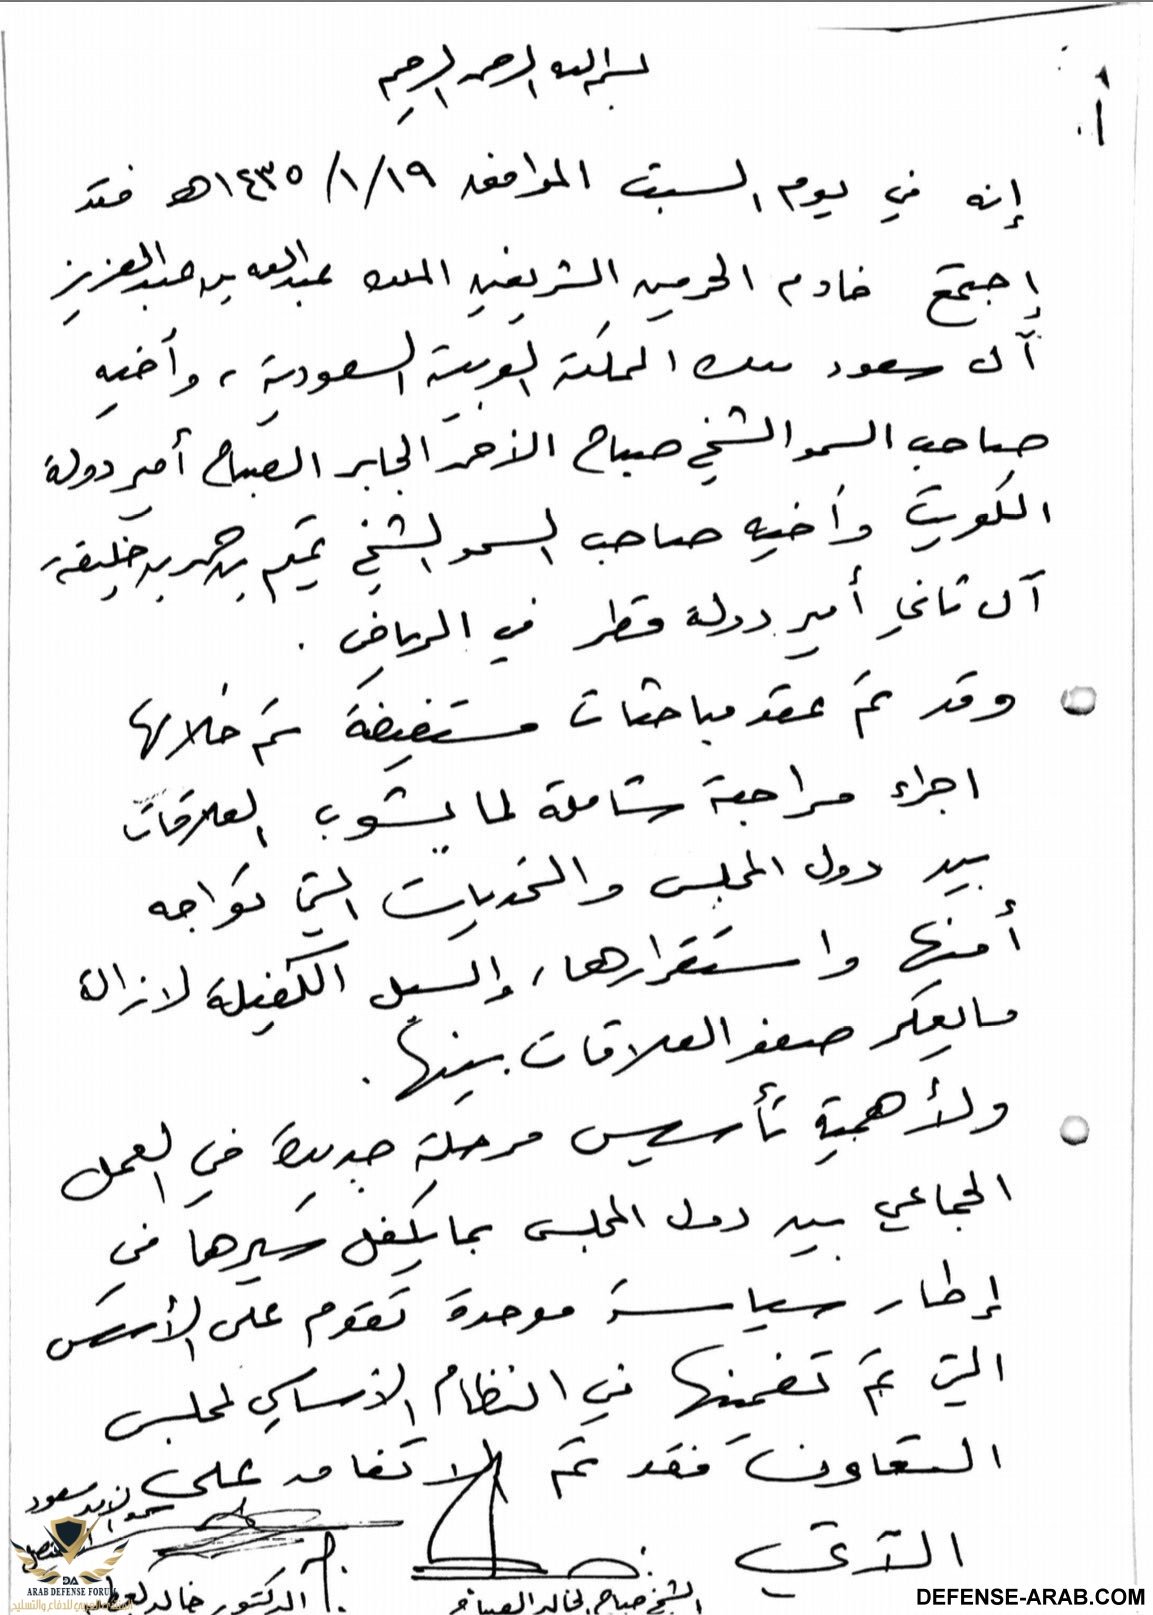 بسم الله الرحمن الرحيم
إنه في يوم السبت الموافق ١٤٣٥/١/١٩هـ فقد
إجتمع خادم الحرمين الشريفين الملك عبدالله بن عبدالعزيز
آل سعود ملك المملكة العربية السعودية ، وأخيه
صاحب السمو الشيخ صباح الأحمد الجابر الصباح أمير دولة
الكويت وأخيه صاحب السمو الشيخ تميم بن حمد بن خليفة
آل ثاني أمير دولة قطر في الرياض .
وقد تم عقد مباحثات مستفيضة تم خلالها
اجراء مراجعة شاملة لما يشوب العلاقات
بين دول المجلس والتحديات التي تواجه
أمنها واستقرارها ، والسبل الكفيلة لازالة
مايعكر صفو العلاقات بينها .
ولأهمية تأسيس مرحلة جديدة في العمل
الجماعي بين دول المجلس بما يكفل سيرها في
إطار سياسة موحدة تقوم على الأسس
التي تم تضمينها في النظام الأساسي لمجلس
التعاون فقد تم الاتفاق على
الآتي
سمو الأمير سعود
الفيصل
الشيخ صباح الخالد الصباح
الدكتور خالد العطية
ARAB DEFENSE FORUM
المنتدى العربي للدفاع والتسليح
DEFENSE-ARAB.COM